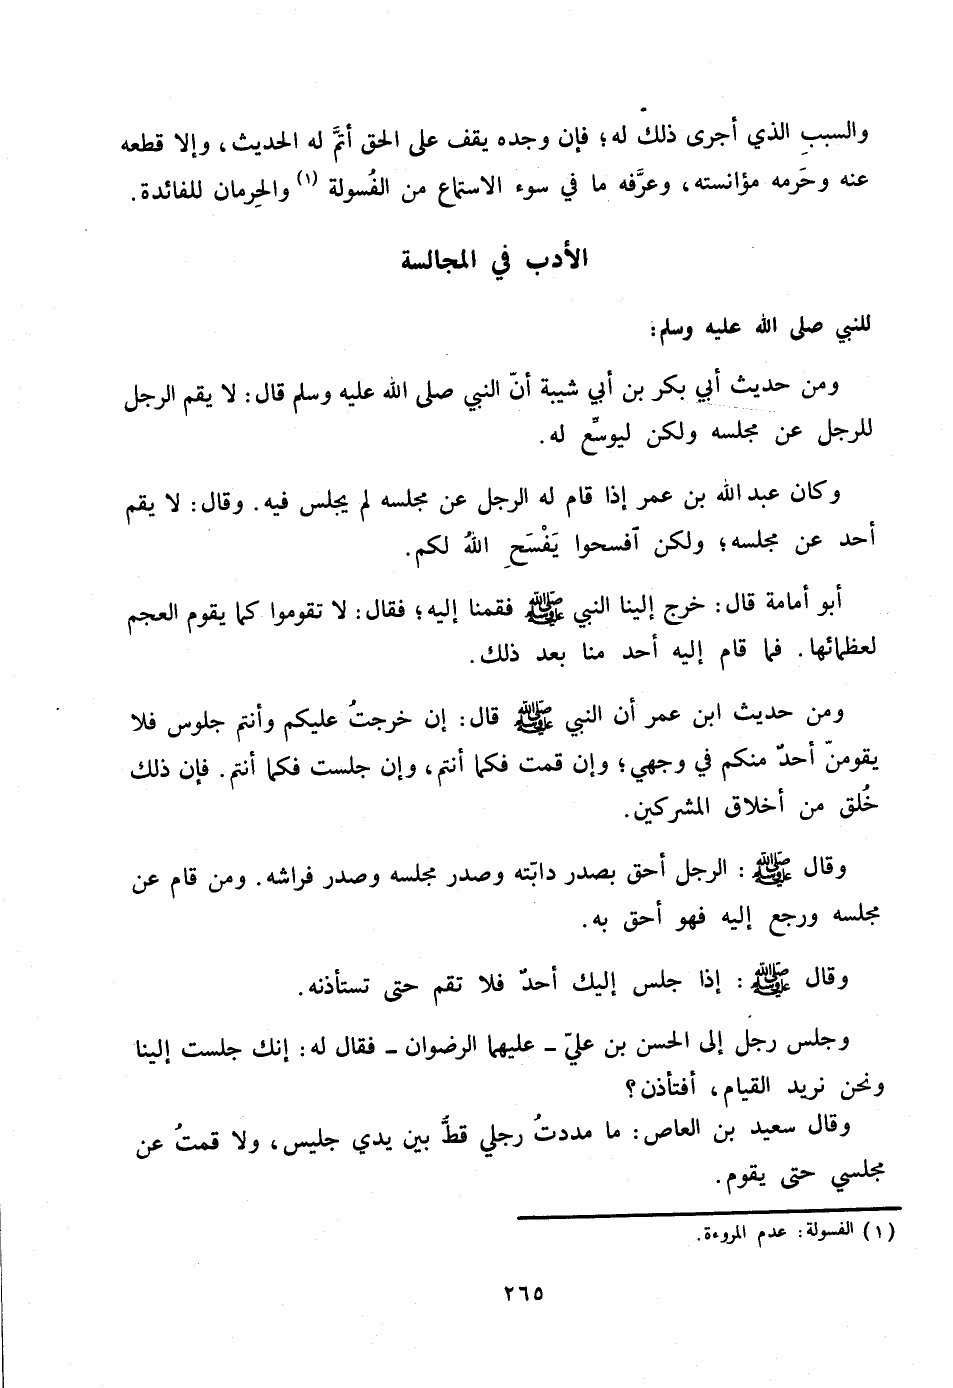 والسبب الذي أجرى ذلك له؛ فإن وجده يقف على الحق أتمَّ له الحديث، وإلا قطعه
عنه وحَرمه مؤانسته، وعرَّفه ما في سوء الاستماع من الفُسولة (١) والحِرمان للفائدة.
الأدب في المجالسة
للنبي صلى الله عليه وسلم:
ومن حديث أبي بكر بن أبي شيبة أنّ النبي صلى الله عليه وسلم قال: لا يقم الرجل
للرجل عن مجلسه ولكن ليوسِّع له.
وكان عبد الله بن عمر إذا قام له الرجل عن مجلسه لم يجلس فيه. وقال: لا يقم
أحد عن مجلسه؛ ولكن آفسحوا يَفْسَحِ اللهُ لكم.
أبو أمامة قال: خرج إلينا النبي ﷺ فقمنا إليه؛ فقال: لا تقوموا كما يقوم العجم
لعظمائها. فما قام إليه أحد منا بعد ذلك.
ومن حديث ابن عمر أن النبي ﷺ قال: إن خرجتُ عليكم وأنتم جلوس فلا
يقومنّ أحدٌ منكم في وجهي؛ وإن قمت فكما أنتم، وإن جلست فكما أنتم. فإن ذلك
خُلق من أخلاق المشركين.
وقال ﷺ: الرجل أحق بصدر دابّته وصدر مجلسه وصدر فراشه. ومن قام عن
مجلسه ورجع إليه فهو أحق به.
وقال ﷺ: إذا جلس إليك أحدٌ فلا تقم حتى تستأذنه.
وجلس رجل إلى الحسن بن عليّ ـ عليهما الرضوان ـ فقال له: إنك جلست إلينا
ونحن نريد القيام، أفتأذن؟
وقال سعيد بن العاص: ما مددتُ رجلي قطُّ بين يدي جليس، ولا قمتُ عن
مجلسي حتى يقوم.
(١) الفسولة: عدم المروءة.
٢٦٥